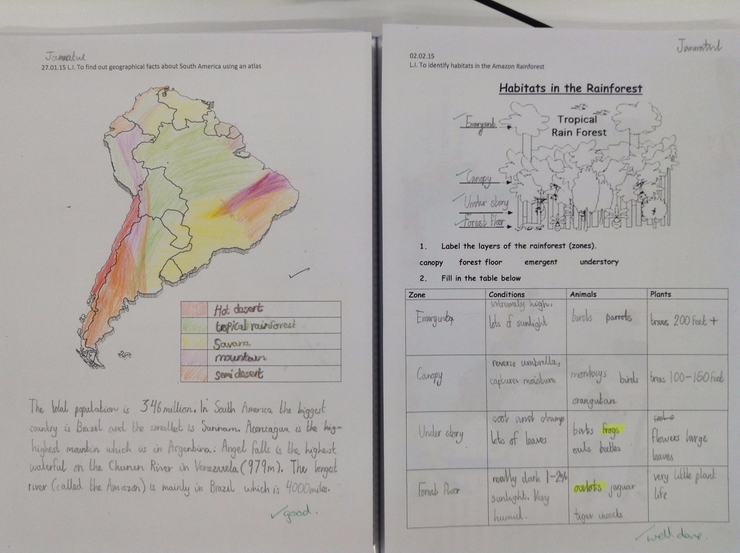 Jannatul
27.01.15 L.I. To find out geographical facts about South America using an atlas
Hot desert
tropical rainforest
Savana
mountain
Semi desert
The total population is 346 million. In South America the biggest
country is Brazil and the smallest is Surinam. Aconcagua is the hig-
highest mountin which is in Argentina. Angel Falls is the highest
waterful on the Churun River in Venezuela (979m). The longest
river (called the Amazon) is mainly in Brazil which is 4000miles.
good.
Jannatul
02.02.15
L.I. To identify habitats in the Amazon Rainforest
Habitats in the Rainforest
Tropical
Rain Forest
Emergent
Canopy
Under story
Forest floor
1. Label the layers of the rainforest (zones).
canopy forest floor emergent understory
2. Fill in the table below
Zone Conditions Animals Plants
Emergent high,
lots of sunlight
birds parrots
trees 200 feet +
Canopy
reverse umbrella,
captures moisture
monkeys birds
orangutan
trees 100-150 feet
Under story
cool and damp
lots of leaves
bats frogs
owls
flowers large
leaves
Forest floor
really dark 1-2%
sunlight. Very
humid.
ocelots jaguar
tiger insects
very little plant
life
well done.